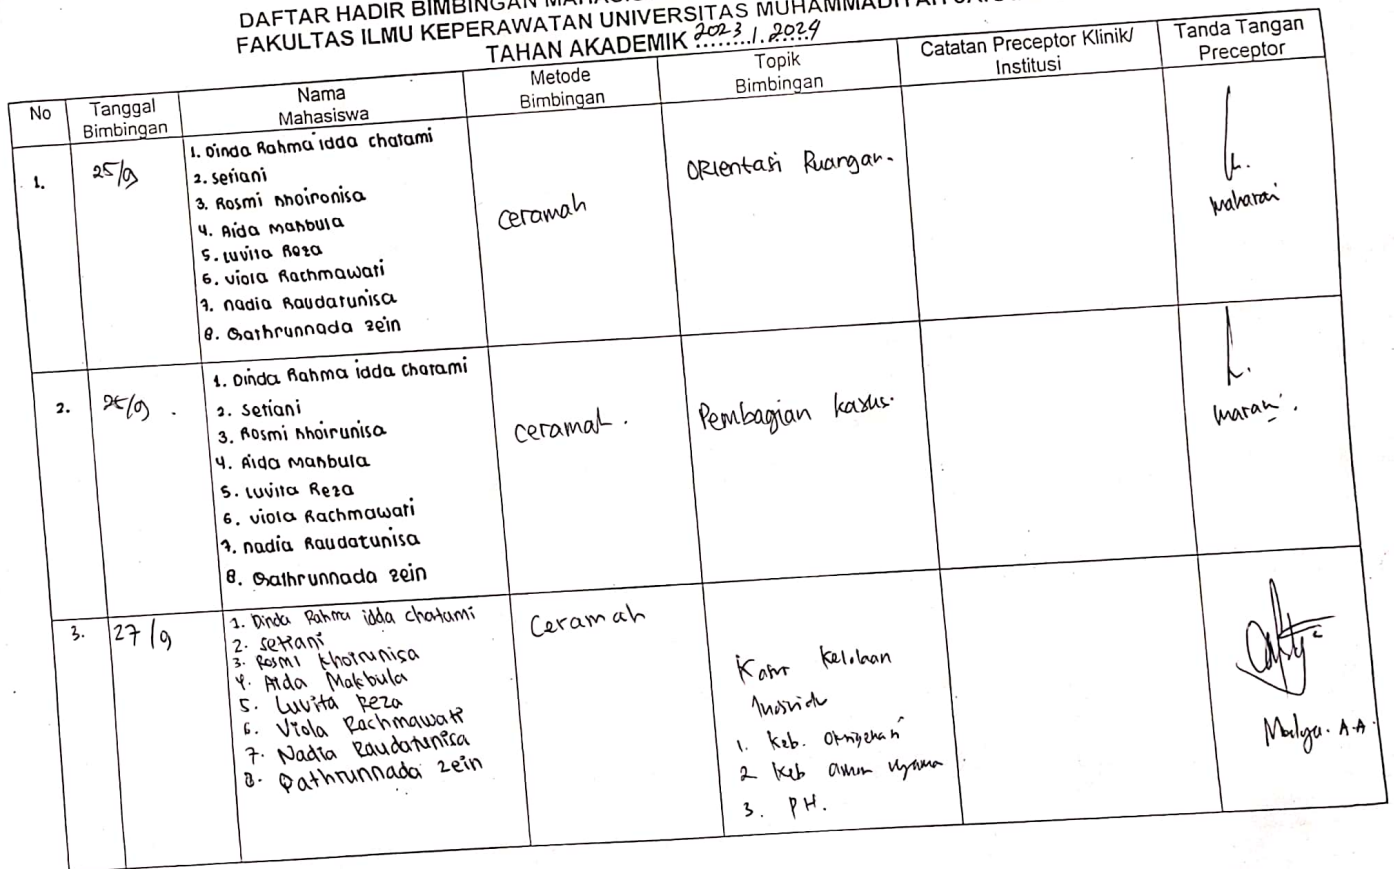 DAFTAR HADIR BIMBINGAN
FAKULTAS ILMU KEPERAWATAN UNIVERSITAS MUHAMMADIYAH
TAHAN AKADEMIK 2023 / 2024
No
Tanggal
Bimbingan
Nama
Mahasiswa
Metode
Bimbingan
Topik
Bimbingan
Catatan Preceptor Klinik/
Institusi
Tanda Tangan
Preceptor
1.
25/9
1. Dinda Rahma idda chatami
2. Setiani
3. Rosmi Khoironisa
4. Aida Makbula
5. Luvita Reza
6. Viola Rachmawati
7. nadia Raudatunisa
8. Qathrunnada zein
ceramah
ORIentasi Ruangan.
2.
1. Dinda Rahma idda chatami
2. Setiani
3. Rosmi Khoirunisa
4. Aida Makbula
5. Luvita Reza
6. Viola Rachmawati
7. nadia Raudatunisa
8. Qathrunnada zein
ceramah.
Pembagian kasus.
3.
27/9
1. Dinda Rahma idda chatami
2. Setiani
3. Rosmi Khoirunisa
4. Aida Makbula
5. Luvita Reza
6. Viola Rachmawati
7. Nadia Raudatunisa
8. Qathrunnada zein
Ceramah
Kelolaan
Individu
1. Keb.
2 Keb aman nyaman
3. PH.
A.A.